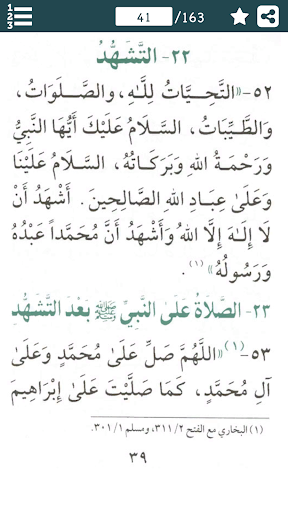 1
2
3
41 /163
٢٢- التَّشَهُّدُ
٥٢-«التَّحِيَّاتُ لِلَّهِ، والصَّلَوَاتُ،
وَالطَّيِّبَاتُ، السَّلَامُ عَلَيْكَ أَيُّهَا النَّبِيُّ
وَرَحْمَةُ اللهِ وَبَرَكَاتُهُ، السَّلَامُ عَلَيْنَا
وَعَلَىٰ عِبَادِ اللهِ الصَّالِحِينَ. أَشْهَدُ أَنْ
لَا إِلَـٰهَ إِلَّا اللهُ وَأَشْهَدُ أَنَّ مُحَمَّداً عَبْدُهُ
وَرَسُولُهُ»(١).
٢٣- الصَّلَاةُ عَلَىٰ النَّبِيِّ ﷺ بَعْدَ التَّشَهُّدِ
٥٣-(١)«اللَّهُمَّ صَلِّ عَلَىٰ مُحَمَّدٍ وَعَلَىٰ
آلِ مُحَمَّدٍ، كَمَا صَلَّيْتَ عَلَىٰ إِبْرَاهِيمَ
(١) البخاري مع الفتح ٣١١/٢، ومسلم ٣٠١/١.
٣٩